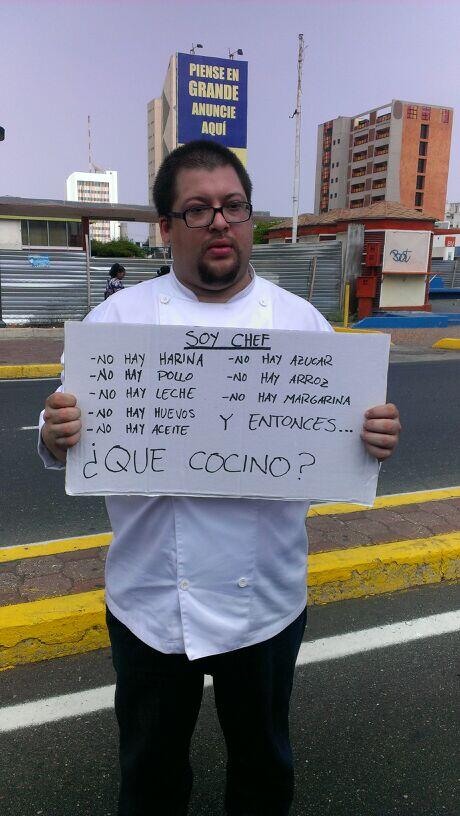 PIENSE EN
GRANDE
ANUNCIE
AQUÍ
SOY CHEF
-NO HAY HARINA
-NO HAY POLLO
-NO HAY LECHE
-NO HAY HUEVOS
-NO HAY ACEITE
-NO HAY AZUCAR
-NO HAY ARROZ
-NO HAY MARGARINA
Y ENTONCES...
¿QUE COCINO?